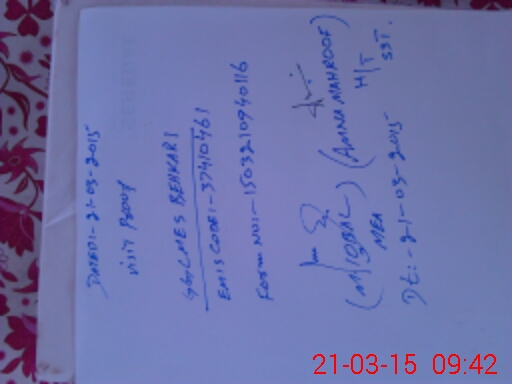 DATED:-21-03-2015
VISIT PROOF
GGCMES BEHKARI
EMIS CODE:-37410461
FORM NO:-1503210940116
(M/IQBAL) (AMNA MAHROOF)
MEA H/T
SST.
Dt:-21-03-2015
21-03-15 09:42